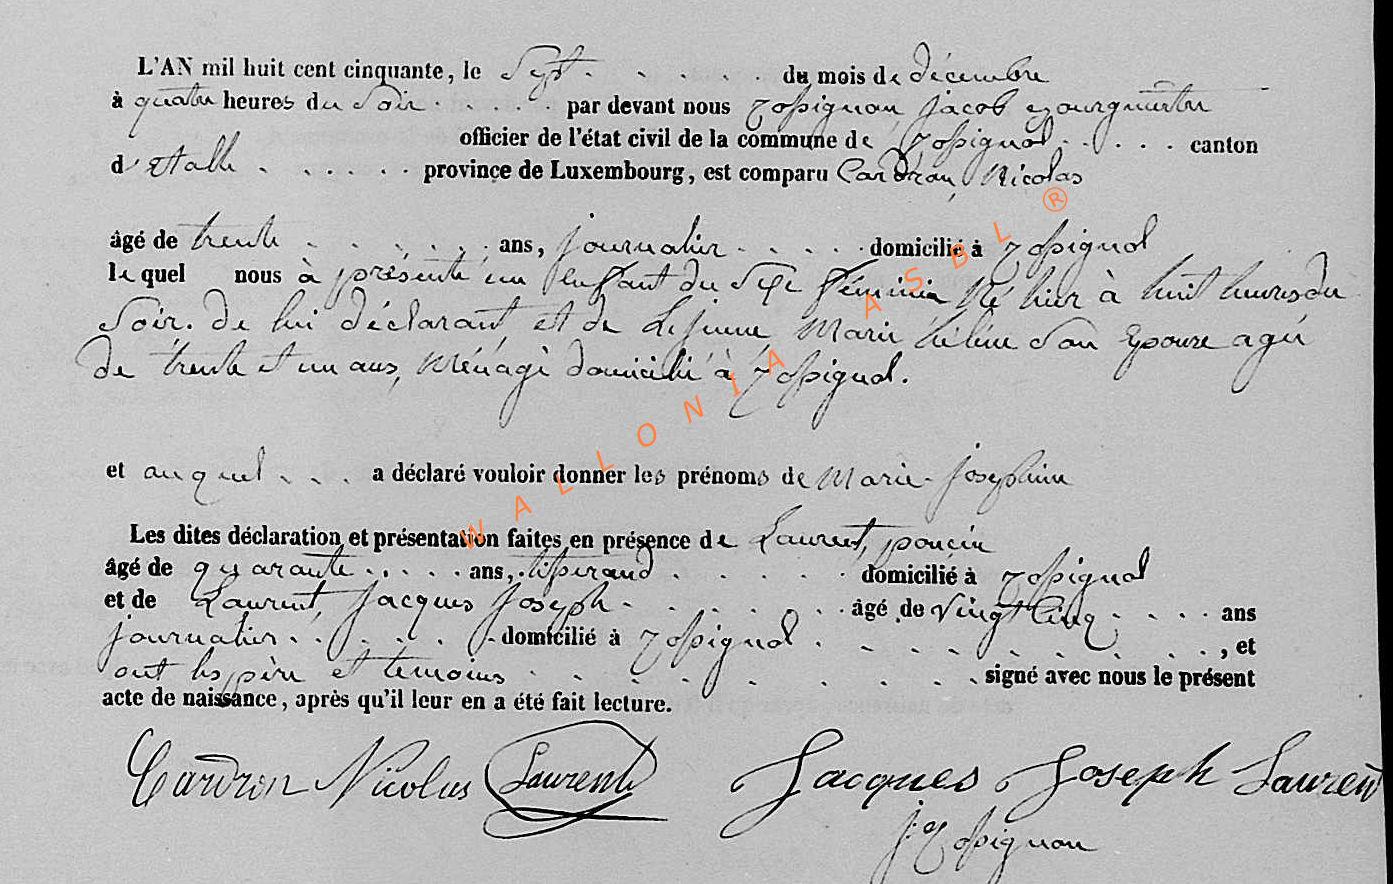 L'AN mil huit cent cinquante, le Sept . . . . . . du mois de décembre
à quatre heures du Soir . . . . . par devant nous Rossignon, Jacob Bourgumestre
officier de l'état civil de la commune de Rossignol . . . . . canton
d'Etalle . . . . . . province de Luxembourg, est comparu Cardron, Nicolas
âgé de trente . . . . . . ans, journalier . . . . . domicilié à Rossignol
le quel nous à présenté un enfant du Sexe féminin Né hier à huit heures du
Soir. de lui déclarant et de Lejeune, Marie hélène Son Epouse agée
de trente et un ans, Ménagè domicilié à Rossignol.
et auquel . . . a déclaré vouloir donner les prénoms de Marie-Joséphine
Les dites déclaration et présentation faites en présence de Laurent,
âgé de quarante . . . . . ans, tisserand . . . . . domicilié à Rossignol
et de Laurent, Jacques Joseph . . . . . . . âgé de Vingt Cinq . . . . ans
journalier . . . . . . domicilié à Rossignol . . . . . . . . . , et
ont les père et temoins . . . . . . . . . signé avec nous le présent
acte de naissance, après qu'il leur en a été fait lecture.
Cardron Nicolas Laurent Jacques Joseph Laurent
J. Rossignon
WALLONIA ASBL ®